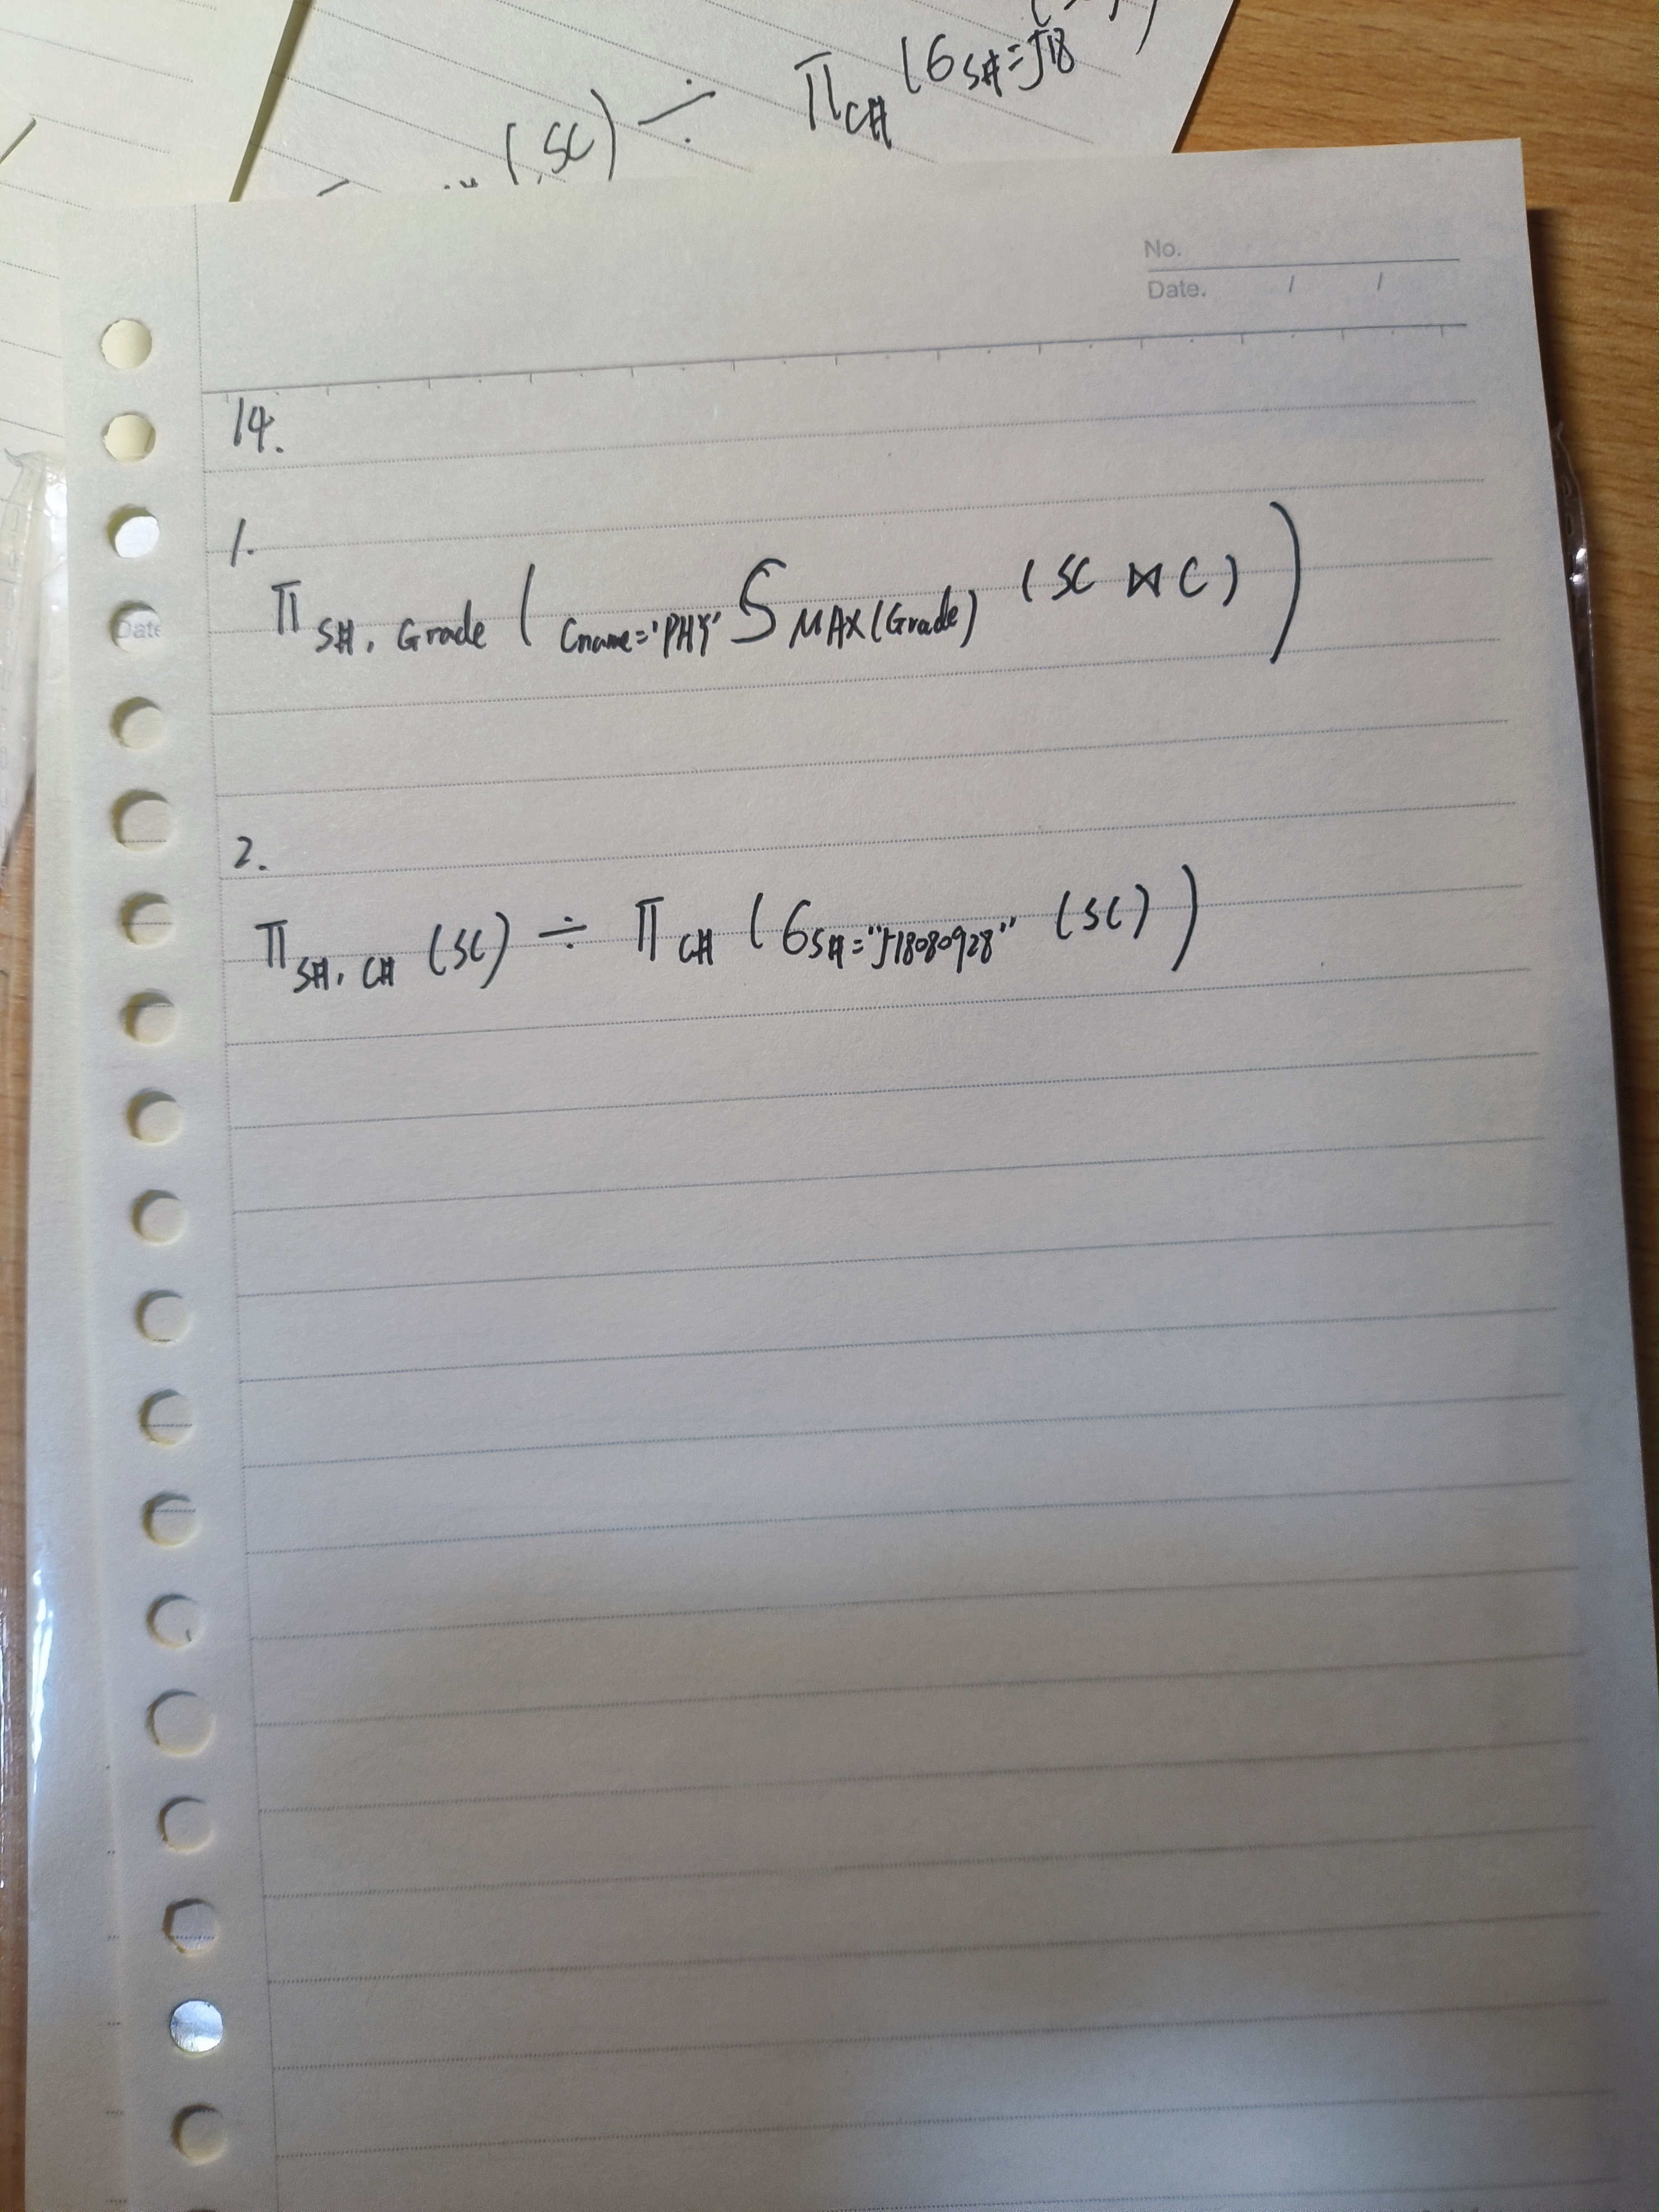 (SC) ÷ π C# (σ S#=J18
No.
Date. / /
14.
1.
Date
π S#, Grade ( Cname='PHY' G MAX(Grade) (SC ⋈ C) )
2.
π S#, C# (SC) ÷ π C# (σ S#="J18080928" (SC) )